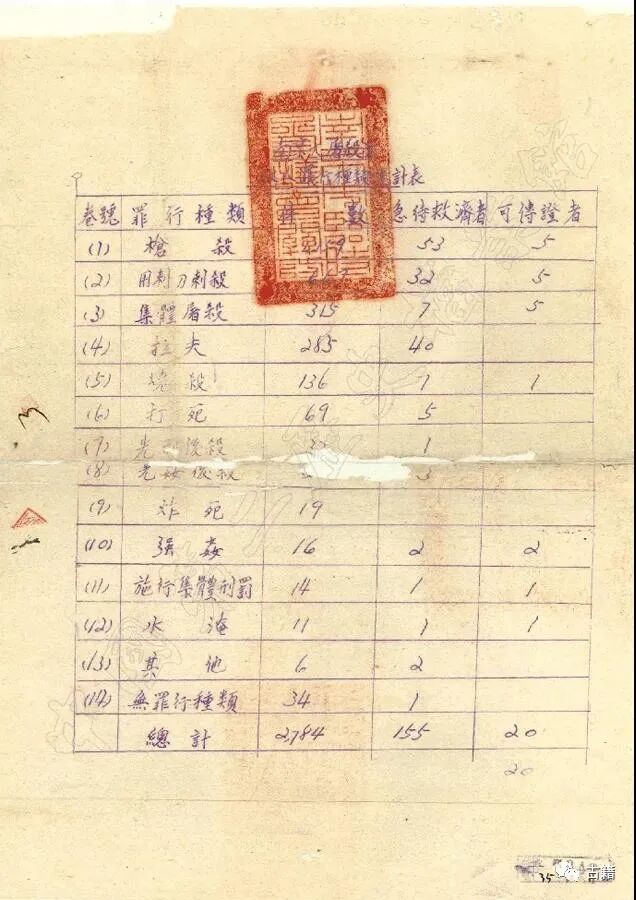 南京大屠殺案
罪行種類統計表
卷號 罪行種類 件數 急待救濟者 可傳證者
(1) 槍殺 1159 53 5
(2) 用刺刀刺殺 32 5
(3) 集體屠殺 315 7 5
(4) 拉夫 285 40
(5) 燒殺 136 7 1
(6) 打死 69 5
(7) 先刑後殺 1
(8) 先姦後殺 3
(9) 炸死 19
(10) 强姦 16 2 2
(11) 施行集體刑罰 14 1 1
(12) 水淹 11 1 1
(13) 其他 6 2
(14) 無罪行種類 34 1
總計 2,784 155 20
20
3
35
古籍